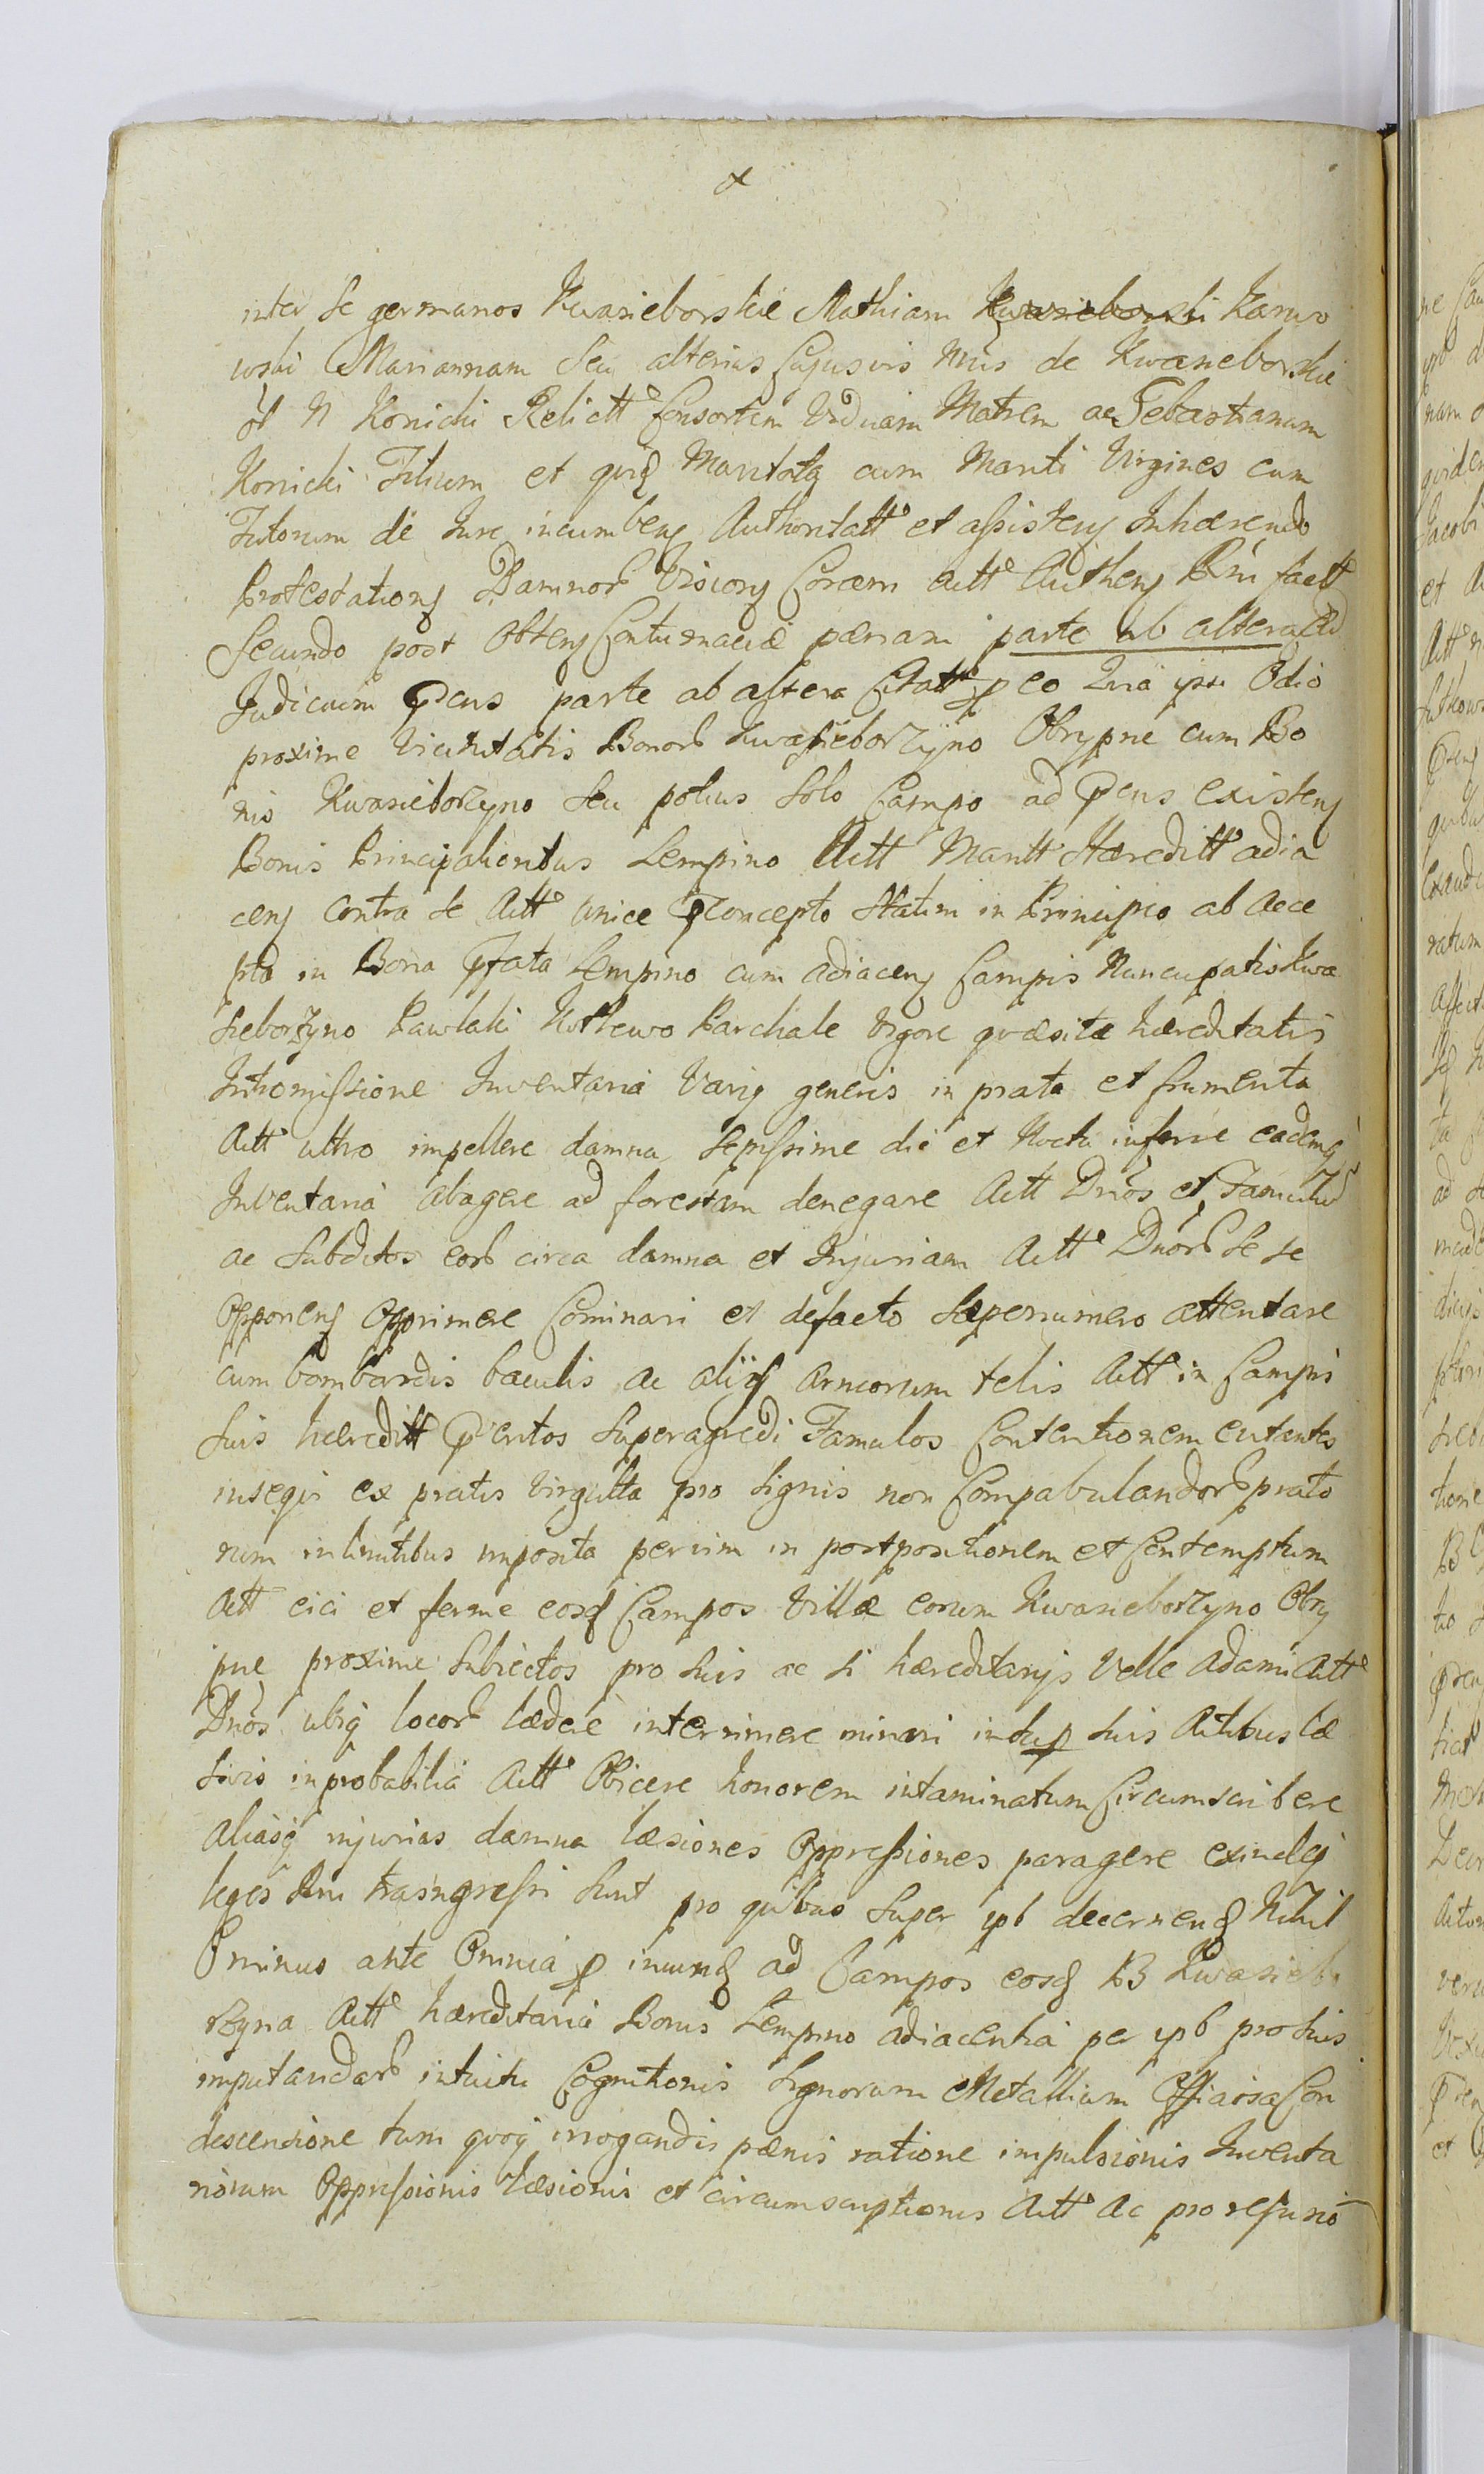 inter se germanos Kwasieborskie Mathiam Kwasieborski Karwo
wski Mariannam seu alterius cujusvis Nnis de Kwasieborskie
ol N Konicki Relictt Consortem Viduam Matrem ac Sebastianum
Konicki Filium et qvidq Maritatq cum Mariti Virgines cum
Tutorum de Jure incumbenq Authoritatt et assistenq Inhaerendo
Protestationq Damnorb Visionq Coram Actt Authenq Pnn factt
Secundo post Obtenq Contumaciae paenam parte ab altera ad
Judicium Pens parte ab altera Citatt p eo Quia ipsi Odio
proxime Vicinitatis Bonorb Kwasieborzyno Obrypne cum Bo
nis Kwasieborzyno seu potius solo Campo ad Pens existenq
Bonis Principalioribus Lempino Actt Maritt Haereditt adia
cenq contra se Actt unice Pconcepto Statim in Principio ab acce
pto in Bona Pfata Lempino cum adiacenq Campis Nuncupatis Kwa
sieborzyno Pawlaki Barchale Vigore qvaesitae haereditatis
Intromissione Inventaria Variq generis in prata et frumenta
Actt ultro impellere damna sepissime die et Noctu inferre eademq
Inventaria abagere ad forestam denegare Actt Dnos et Famulitiu
ac subditos eorb circa damna et Injuriam Actt Dnorb se se
Opponenq Opprimere Cominari et defacto saepenumero attentare
cum bombardis baculis ac alijsq armorum telis Actt in Campis
suis haereditt Pentos superagredi Famulos Contentionem evitantes
inseqvi ex pratis virgulta pro signis non Compabulandorb prato
rum in limitibus imposita penum in postpositionem et Contemptum
Actt eici et ferme eosq Campos Villae eorum Kwasieborzyno Obry
pne proxime subiectos pro suis ac si haereditarijs Velle Adami Actt
Dnos ubiq locorb laedere interrimere minari insup suis Actibus lae
sivis improbabilia Actt Obicere honorem intaminatum Circumscribere
aliasq injurias damna laesiones Oppressiones paragere exindeq
leges Rni trasngressi sunt pro qvibus super ipb decernenq Nihil
Ominus ante Omnia p ad Campos eosq B Kwasiebo
rzyna Actt haereditaria Bonis Lempino adiacentia per ipb pro suis
imputandarb intuitu Cognitionis signorum Metallium Officiosa Con
descensione tum qvoq irrogandis paenis ratione impulsionis Inventa
riorum Oppressionis laesionis et circumscriptionis Actt ac pro refusio